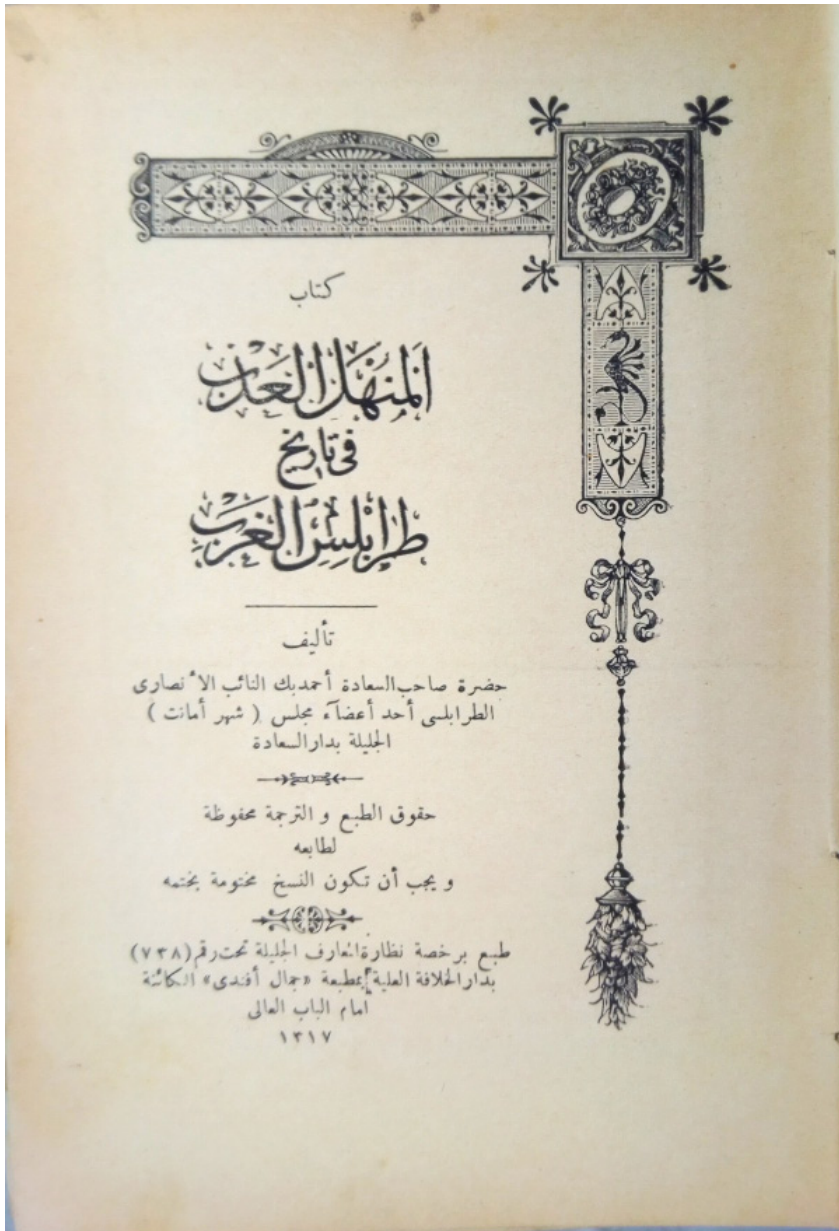 كتاب
المنهل العذب
فى تاريخ
طرابلس الغرب
تأليف
حضرة صاحب السعادة أحمد بك النائب الأنصارى
الطرابلسى أحد أعضآء مجلس ( شهر أمانت )
الجليلة بدار السعادة
حقوق الطبع و الترجمة محفوظة
لطابعه
و يجب أن تكون النسخ مختومة بختمه
طبع برخصة نظارة المعارف الجليلة تحت رقم (٧٣٨)
بدار الخلافة العلية بمطبعة «جمال أفندى» الكائنة
امام الباب العالى
١٣١٧